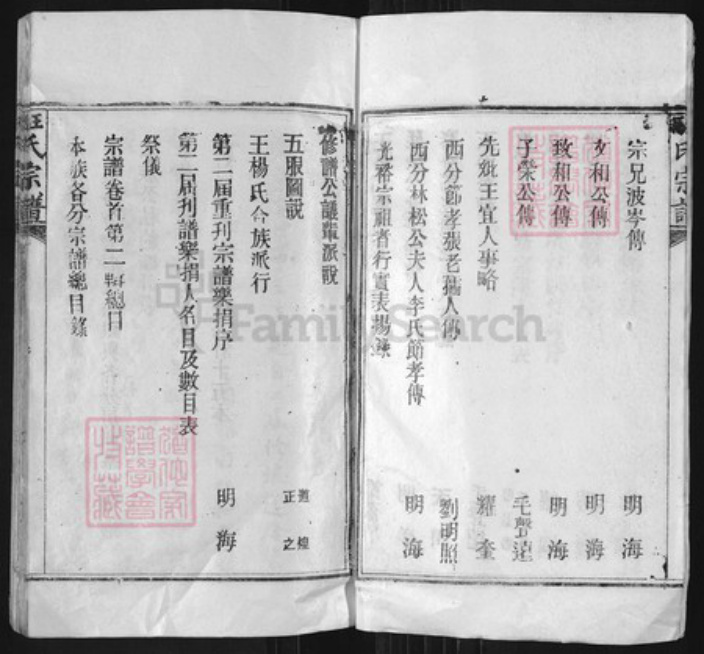 宗兄波岑傳 明海
文和公傳 明海
致和公傳 明海
子榮公傳 毛聲遠
先妣王宜人事略 耀奎
西分節孝張老孺人傳 劉明照
西分林松公夫人李氏節孝傳 明海
光裔宗祖耆行實表揚錄
氏宗譜
修譜公議輩派說 煌 正之
五服圖說
王楊氏合族派行
第二届重刊宗譜樂捐序 明海
第二届刊譜樂捐人名目及數目表
祭儀
宗譜卷首第二 總目
本族各分宗譜總目錄
王氏宗譜
FamilySearch